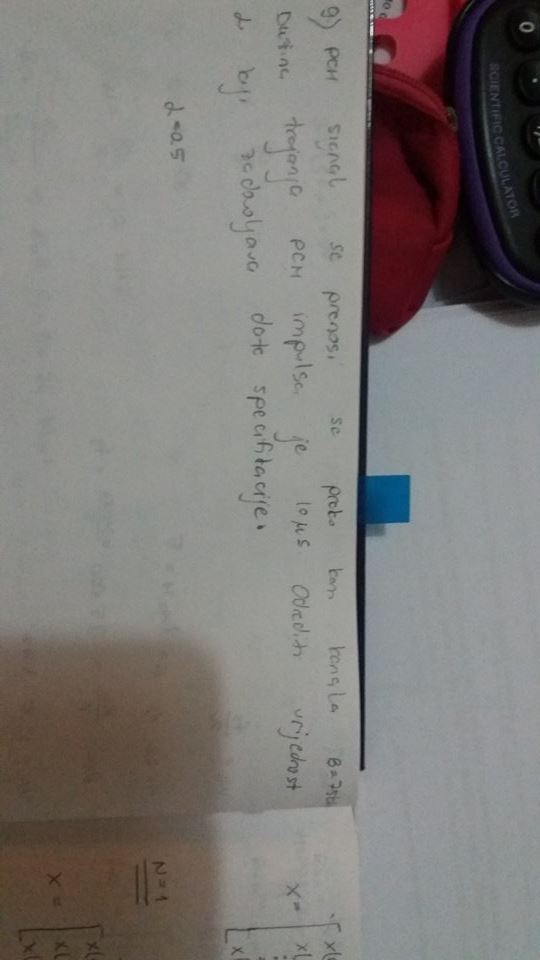 9) PCM signal se prenosi se preko kom kanala B=75k
Dužina trajanja PCM impulsa je 10 μs Odrediti vrijednost
α koji zadovoljava date specifikacije.
α=0.5
SCIENTIFIC CALCULATOR
0
X =
N=1
X =